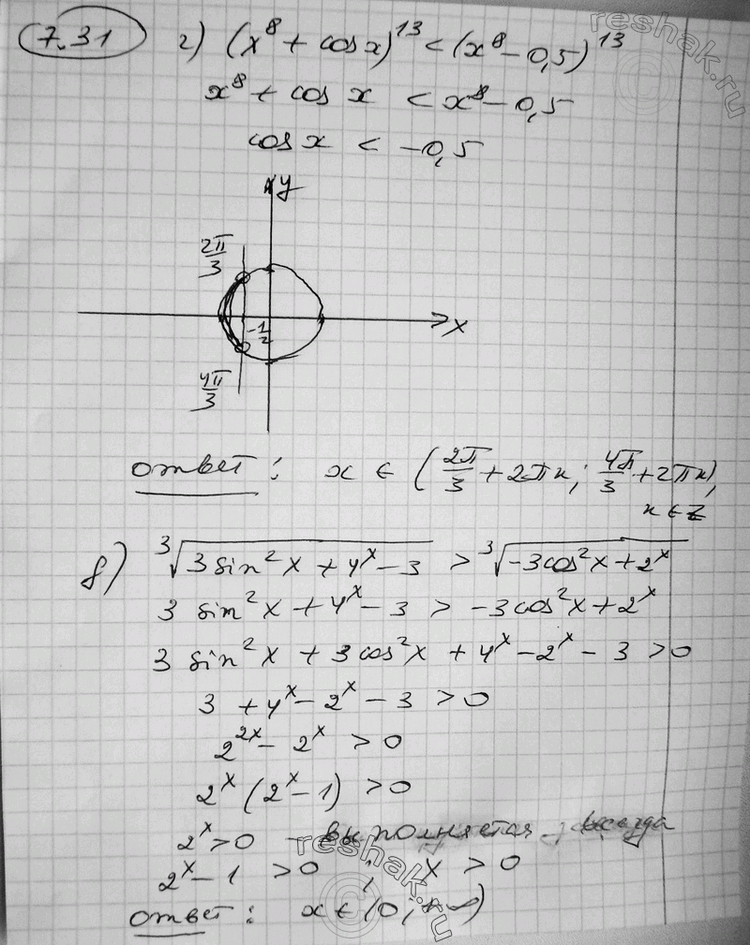 7.31 г) (x⁸ + cos x)¹³ < (x⁸ - 0,5)¹³
x⁸ + cos x < x⁸ - 0,5
cos x < -0,5
y
2π/3
-1/2
x
4π/3
ответ: x ∈ (2π/3 + 2πn; 4π/3 + 2πn),
n ∈ Z
в) ∛(3 sin²x + 4ˣ - 3) > ∛(-3cos²x + 2ˣ)
3 sin²x + 4ˣ - 3 > -3cos²x + 2ˣ
3 sin²x + 3 cos²x + 4ˣ - 2ˣ - 3 > 0
3 + 4ˣ - 2ˣ - 3 > 0
2²ˣ - 2ˣ > 0
2ˣ (2ˣ - 1) > 0
2ˣ > 0 - выполняется всегда
2ˣ - 1 > 0 ; x > 0
ответ: x ∈ (0; +∞)
reshak.ru
reshak.ru